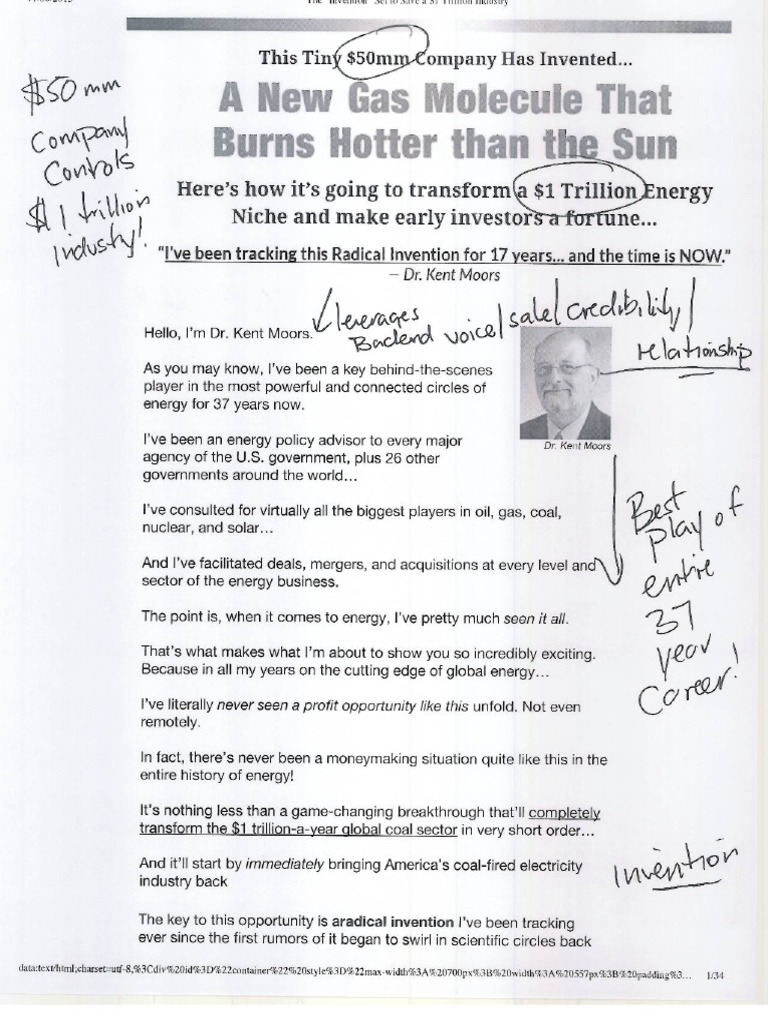 The "Invention" Set to Save a $1 Trillion Industry
This Tiny $50mm Company Has Invented...
A New Gas Molecule That
Burns Hotter than the Sun
Here's how it's going to transform a $1 Trillion Energy
Niche and make early investors a fortune...
"I've been tracking this Radical Invention for 17 years... and the time is NOW."
– Dr. Kent Moors
$50mm
Company
Controls
$1 trillion
industry!
leverages
Backend voice/sale/credibility/
relationship
Hello, I'm Dr. Kent Moors.
As you may know, I've been a key behind-the-scenes
player in the most powerful and connected circles of
energy for 37 years now.
Dr. Kent Moors
I've been an energy policy advisor to every major
agency of the U.S. government, plus 26 other
governments around the world...
I've consulted for virtually all the biggest players in oil, gas, coal,
nuclear, and solar...
And I've facilitated deals, mergers, and acquisitions at every level and
sector of the energy business.
Best
play of
entire
37
year
Career!
The point is, when it comes to energy, I've pretty much seen it all.
That's what makes what I'm about to show you so incredibly exciting.
Because in all my years on the cutting edge of global energy...
I've literally never seen a profit opportunity like this unfold. Not even
remotely.
In fact, there's never been a moneymaking situation quite like this in the
entire history of energy!
It's nothing less than a game-changing breakthrough that'll completely
transform the $1 trillion-a-year global coal sector in very short order...
And it'll start by immediately bringing America's coal-fired electricity
industry back
Invention
The key to this opportunity is aradical invention I've been tracking
ever since the first rumors of it began to swirl in scientific circles back
data:text/html;charset=utf-8,%3Cdiv%20id%3D%22container%22%20style%3D%22max-width%3A%20700px%3B%20width%3A%20557px%3B%20padding%3... 1/34